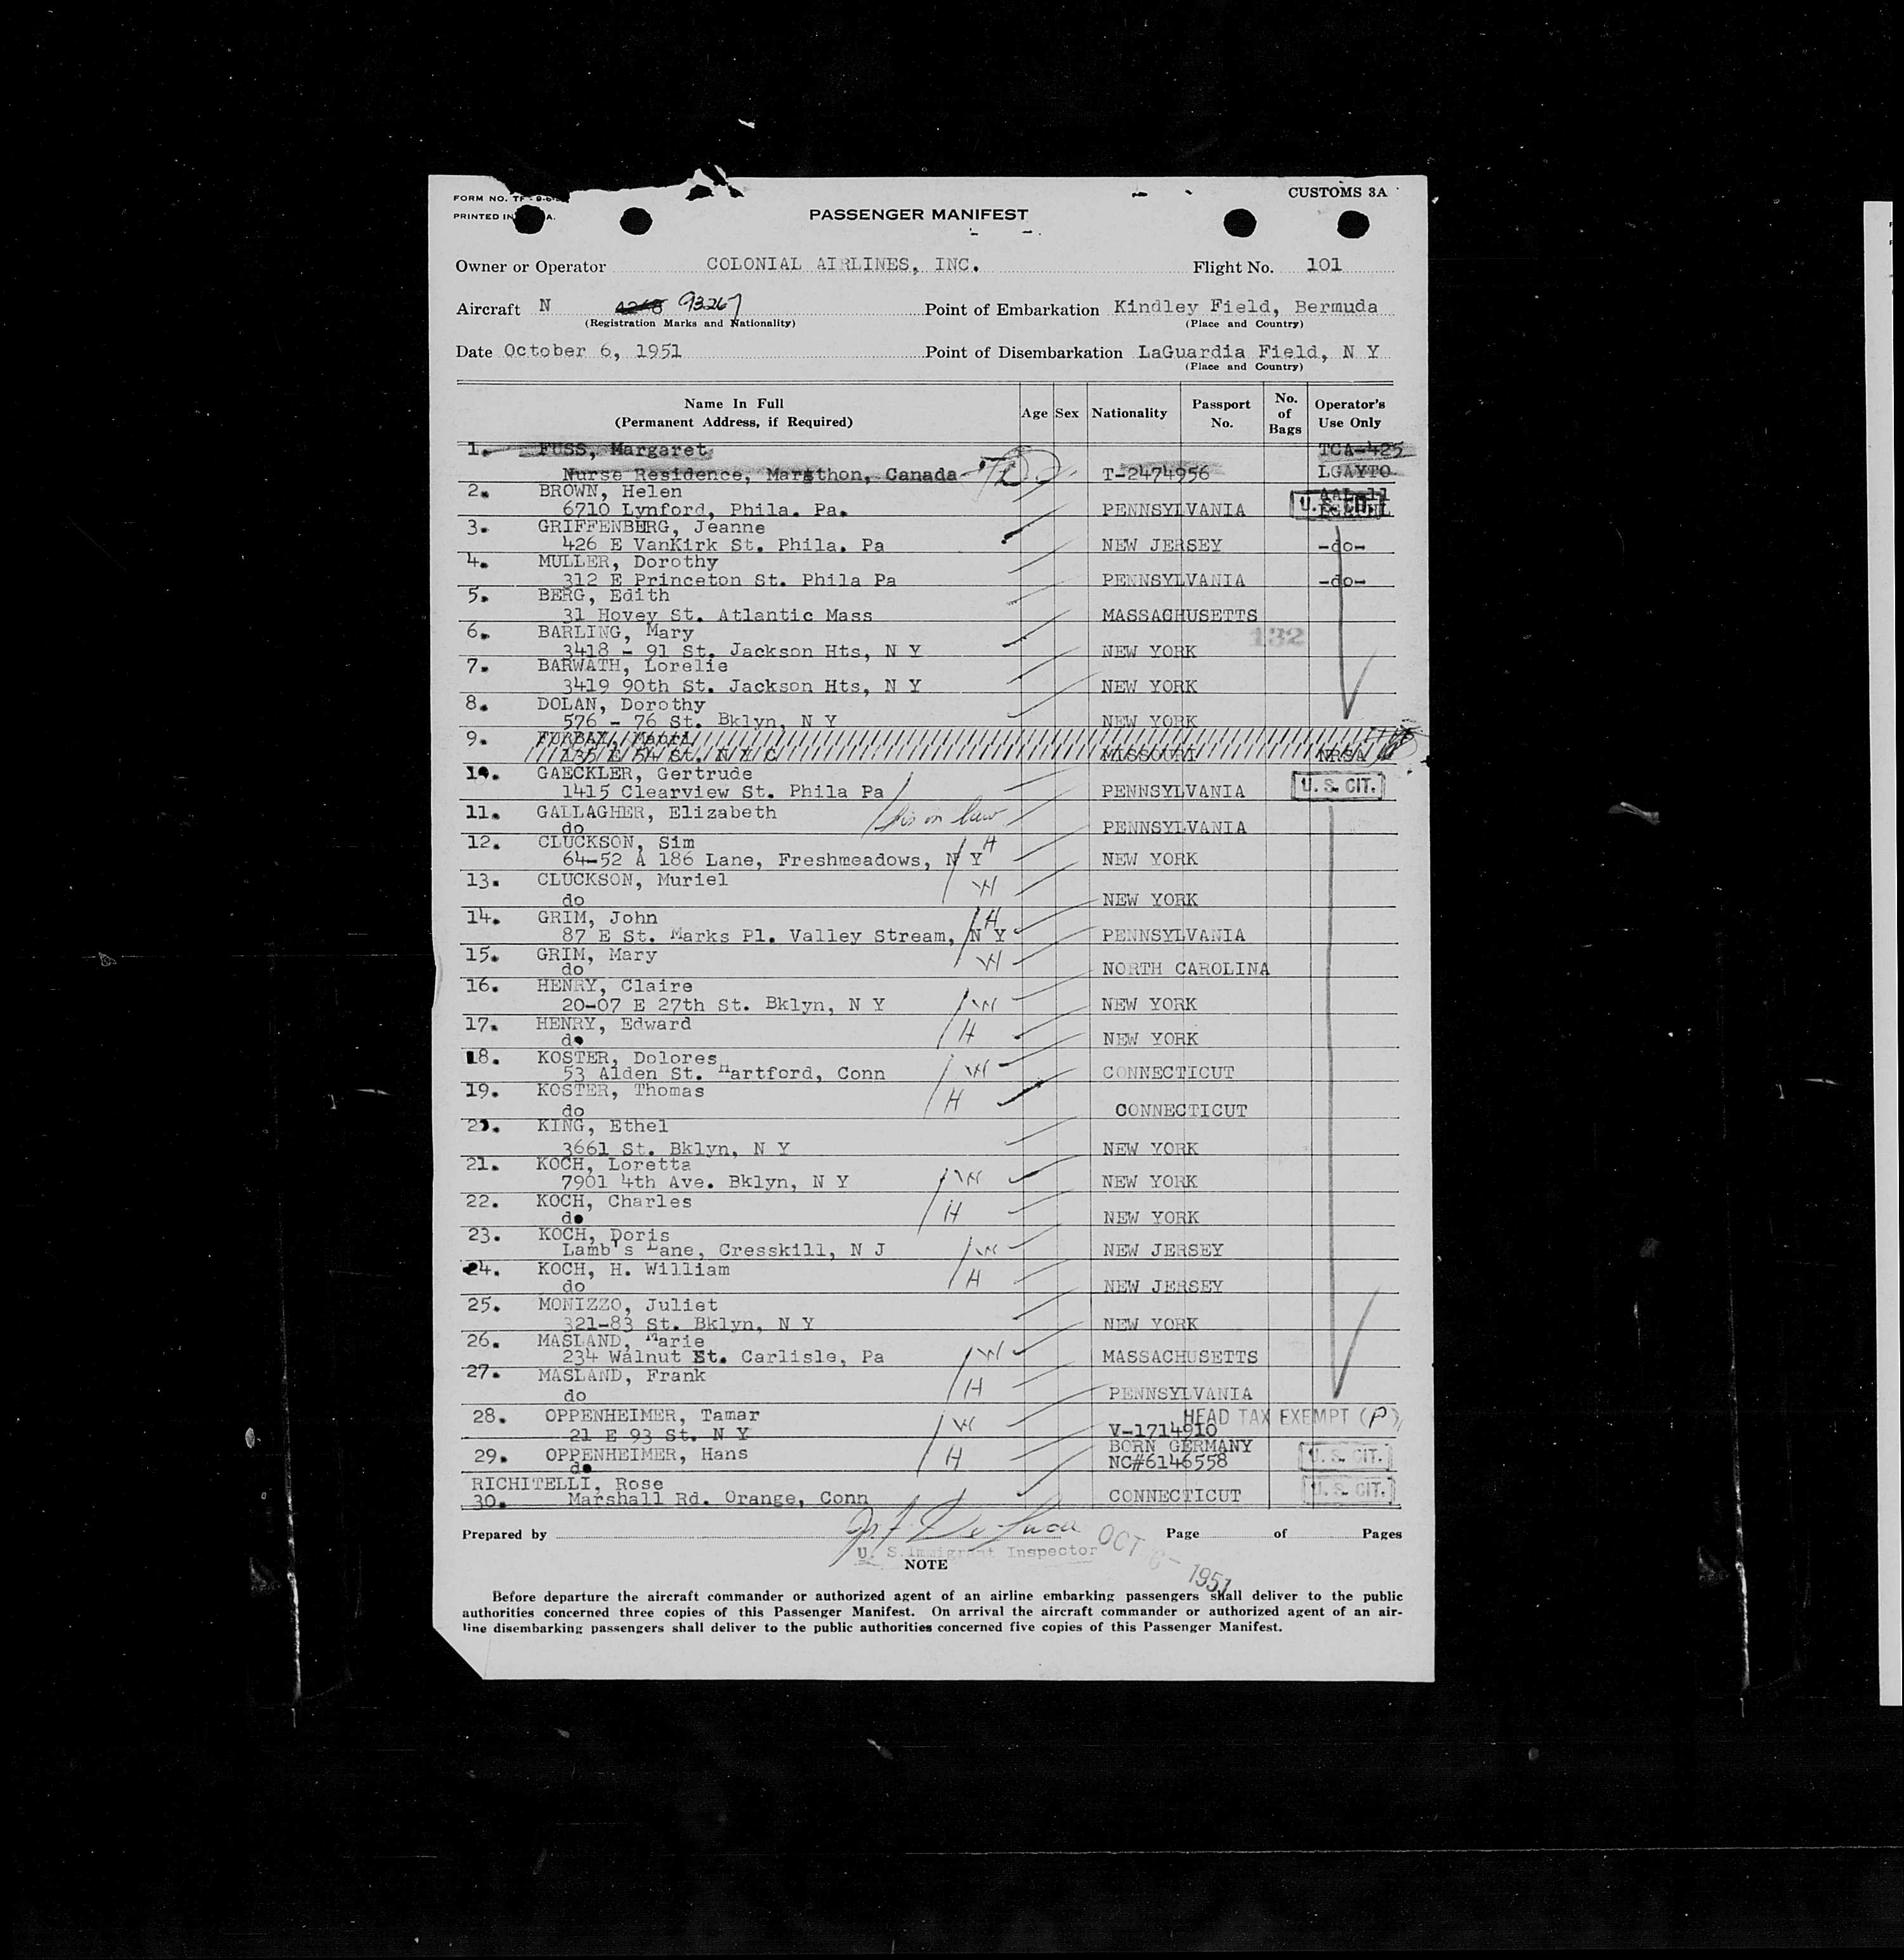 CUSTOMS 3A
FORM NO. TF-9-6-
PRINTED IN A.
PASSENGER MANIFEST
Owner or Operator COLONIAL AIRLINES, INC. Flight No. 101
Aircraft N 93267 Point of Embarkation Kindley Field, Bermuda
(Registration Marks and Nationality) (Place and Country)
Date October 6, 1951 Point of Disembarkation LaGuardia Field, N Y
(Place and Country)
Name In Full (Permanent Address, if Required) Age Sex Nationality Passport No. No. of Bags Operator's Use Only
1. FUSS, Margaret TCA-425
Nurse Residence, Marathon, Canada T-2474956 LGAYTO
2. BROWN, Helen
6710 Lynford, Phila. Pa. PENNSYLVANIA U. S. CIT.
3. GRIFFENBERG, Jeanne
426 E VanKirk St. Phila. Pa NEW JERSEY -do-
4. MULLER, Dorothy
312 E Princeton St. Phila Pa PENNSYLVANIA -do-
5. BERG, Edith
31 Hovey St. Atlantic Mass MASSACHUSETTS
6. BARLING, Mary 132
3418 - 91 St. Jackson Hts, N Y NEW YORK
7. BARWATH, Lorelie
3419 90th St. Jackson Hts, N Y NEW YORK
8. DOLAN, Dorothy
576 - 76 St. Bklyn, N Y NEW YORK
9. FURBAY, Mauri
135 E 54 St. N Y C MISSOURI NRSA
10. GAECKLER, Gertrude
1415 Clearview St. Phila Pa PENNSYLVANIA U. S. CIT.
11. GALLAGHER, Elizabeth sis in law
do PENNSYLVANIA
12. CLUCKSON, Sim H
64-52 A 186 Lane, Freshmeadows, N Y NEW YORK
13. CLUCKSON, Muriel W
do NEW YORK
14. GRIM, John H
87 E St. Marks Pl. Valley Stream, N Y PENNSYLVANIA
15. GRIM, Mary W
do NORTH CAROLINA
16. HENRY, Claire
20-07 E 27th St. Bklyn, N Y W NEW YORK
17. HENRY, Edward H
do NEW YORK
18. KOSTER, Dolores
53 Alden St. Hartford, Conn W CONNECTICUT
19. KOSTER, Thomas H
do CONNECTICUT
20. KING, Ethel
3661 St. Bklyn, N Y NEW YORK
21. KOCH, Loretta
7901 4th Ave. Bklyn, N Y W NEW YORK
22. KOCH, Charles H
do NEW YORK
23. KOCH, Doris
Lamb's Lane, Cresskill, N J W NEW JERSEY
24. KOCH, H. William H
do NEW JERSEY
25. MONIZZO, Juliet
321-83 St. Bklyn, N Y NEW YORK
26. MASLAND, Marie
234 Walnut St. Carlisle, Pa W MASSACHUSETTS
27. MASLAND, Frank H
do PENNSYLVANIA
28. OPPENHEIMER, Tamar W HEAD TAX EXEMPT (P)
21 E 93 St. N Y V-1714910
29. OPPENHEIMER, Hans H BORN GERMANY U. S. CIT.
do NC#6146558
RICHITELLI, Rose
30. Marshall Rd. Orange, Conn CONNECTICUT U. S. CIT.
Prepared by Page of Pages
U. S. Immigrant Inspector OCT 6 - 1951
NOTE
Before departure the aircraft commander or authorized agent of an airline embarking passengers shall deliver to the public
authorities concerned three copies of this Passenger Manifest. On arrival the aircraft commander or authorized agent of an air-
line disembarking passengers shall deliver to the public authorities concerned five copies of this Passenger Manifest.